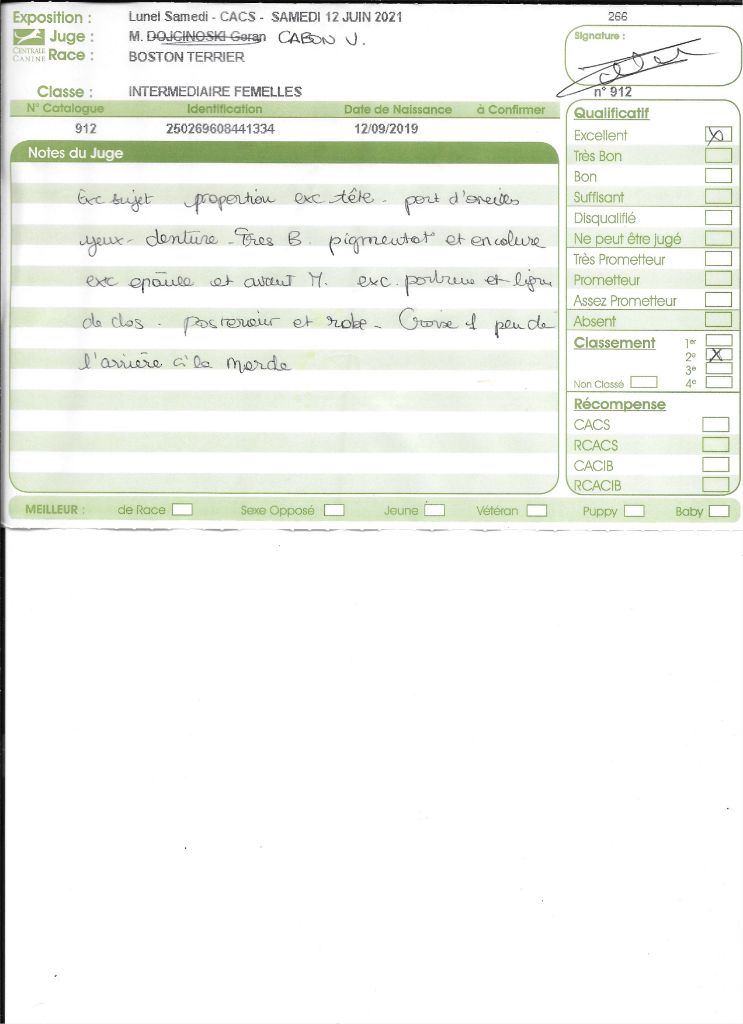 Exposition : Lunel Samedi - CACS - SAMEDI 12 JUIN 2021 266
Juge : M. DOJCINOSKI Goran CABON V.
CENTRALE CANINE
Race : BOSTON TERRIER
Classe : INTERMEDIAIRE FEMELLES
Signature :
n° 912
N° Catalogue Identification Date de Naissance à Confirmer
912 250269608441334 12/09/2019
Notes du Juge
Exc sujet proportion exc tête - port d'oreilles
yeux - denture - Tres B. pigmentat° et encolure
exc epaule et avant M. exc poitrine et ligne
de dos - posterieur et robe - Croise 1 peu de
l'arrière à la marche
Qualificatif
Excellent X
Très Bon
Bon
Suffisant
Disqualifié
Ne peut être jugé
Très Prometteur
Prometteur
Assez Prometteur
Absent
Classement 1er
2e X
3e
Non Classé 4e
Récompense
CACS
RCACS
CACIB
RCACIB
MEILLEUR : de Race Sexe Opposé Jeune Vétéran Puppy Baby